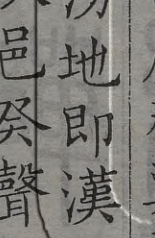 地即漢
邑癸聲